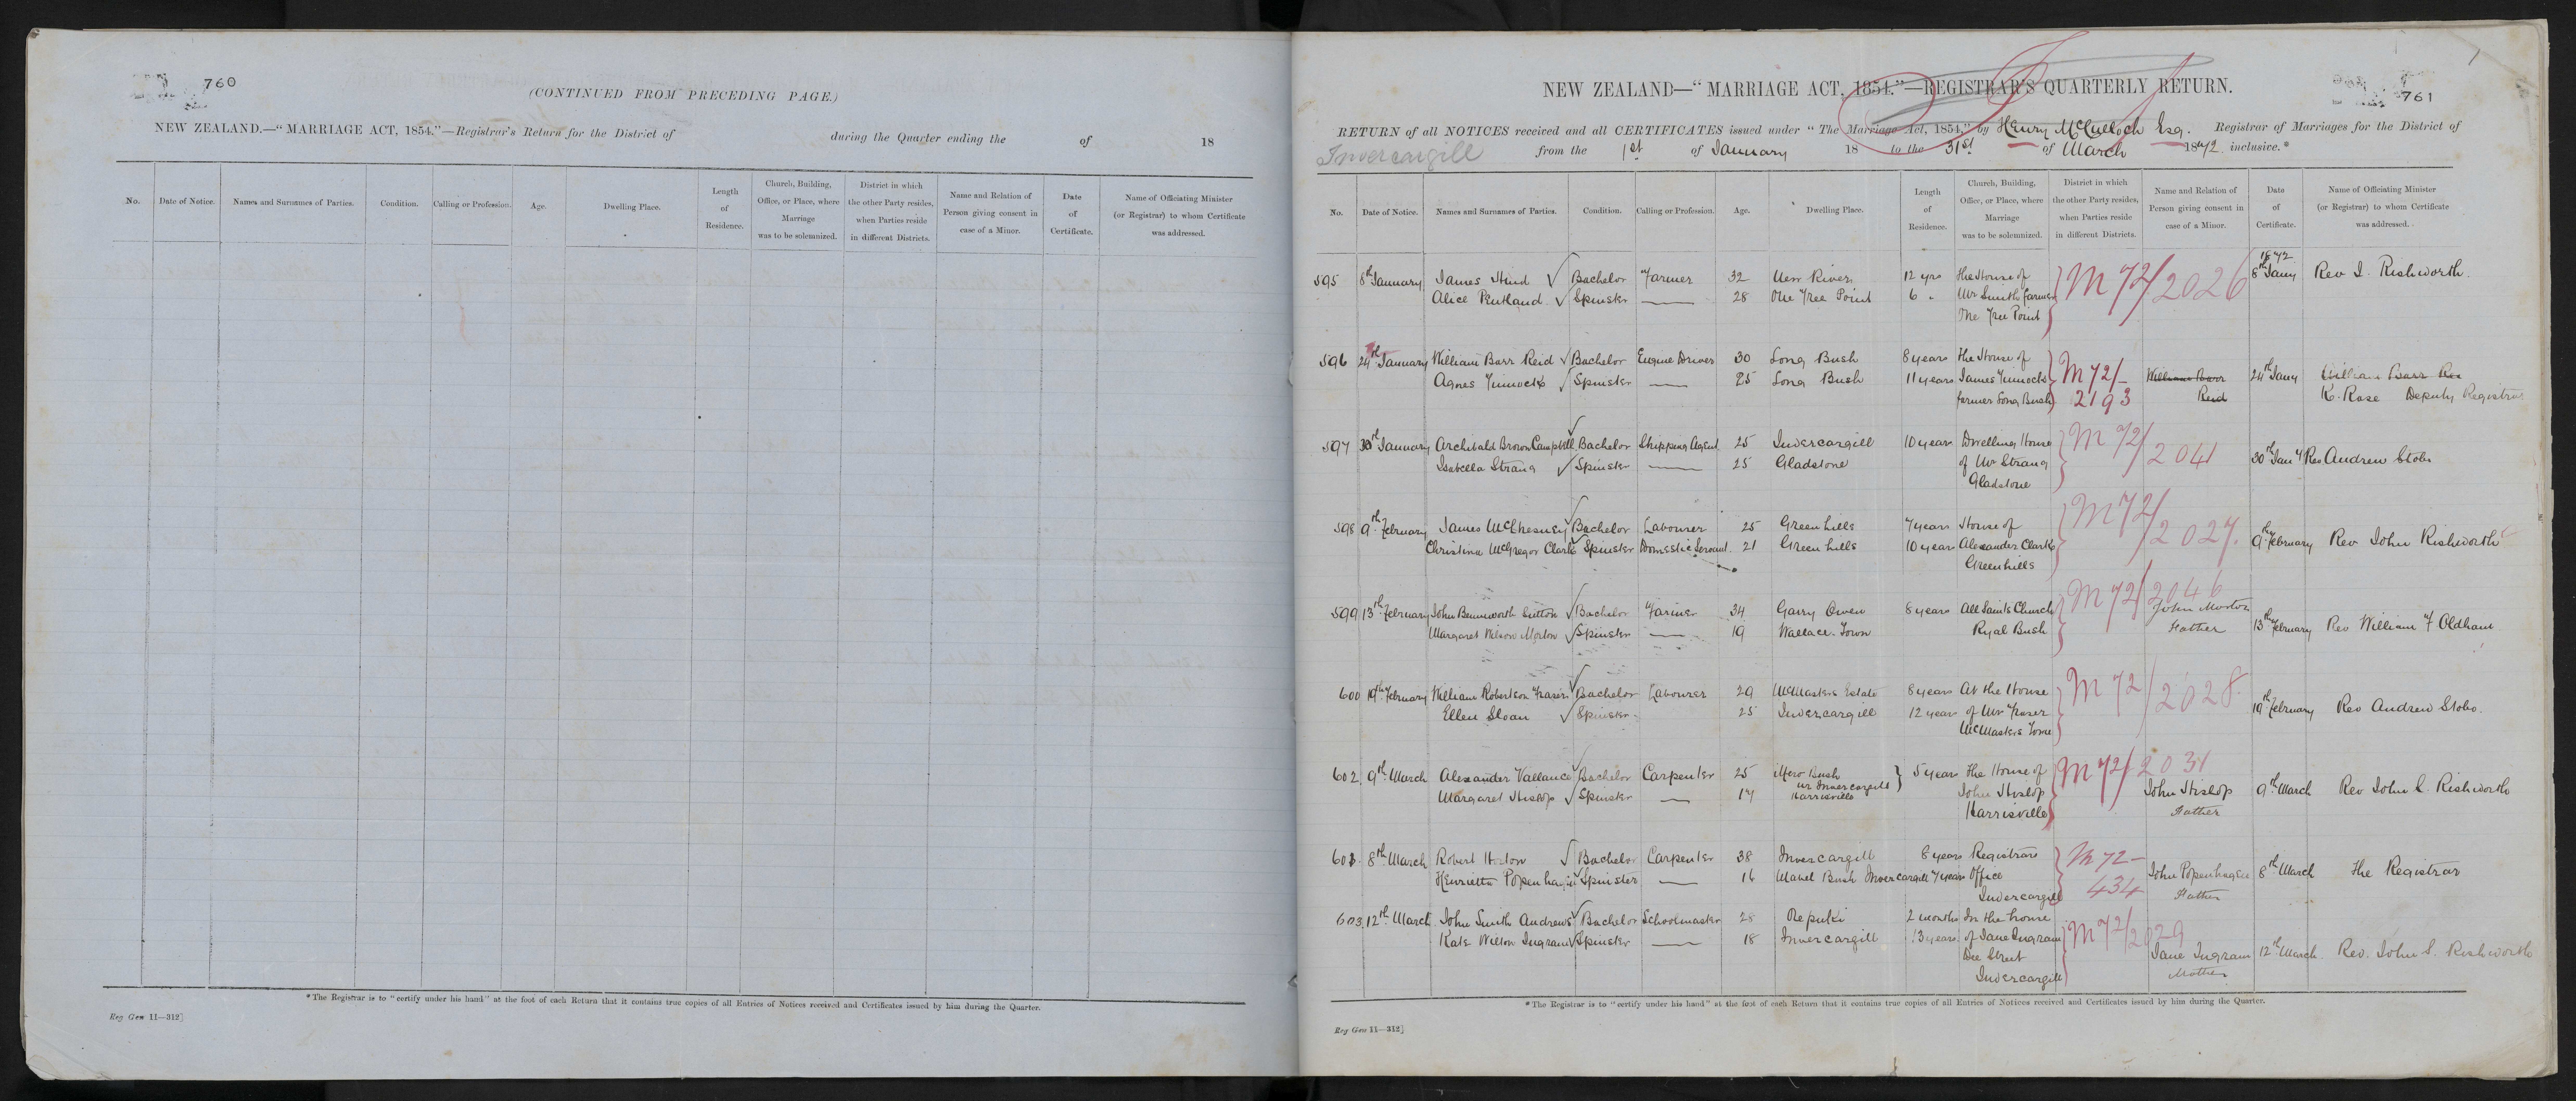 760
(CONTINUED FROM PRECEDING PAGE.)
NEW ZEALAND.—"MARRIAGE ACT, 1854."—Registrar's Return for the District of during the Quarter ending the of 18
No. Date of Notice. Names and Surnames of Parties. Condition. Calling or Profession. Age. Dwelling Place. Length of Residence. Church, Building, Office, or Place, where Marriage was to be solemnized. District in which the other Party resides, when Parties reside in different Districts. Name and Relation of Person giving consent in case of a Minor. Date of Certificate. Name of Officiating Minister (or Registrar) to whom Certificate was addressed.
* The Registrar is to "certify under his hand" at the foot of each Return that it contains true copies of all Entries of Notices received and Certificates issued by him during the Quarter.
Reg Gen 11—312]
761
NEW ZEALAND—"MARRIAGE ACT, 1854."—REGISTRAR'S QUARTERLY RETURN.
RETURN of all NOTICES received and all CERTIFICATES issued under "The Marriage Act, 1854," by Henry McCulloch Esq. Registrar of Marriages for the District of
Invercargill from the 1st of January 18 to the 31st of March 1872 inclusive.*
No. Date of Notice. Names and Surnames of Parties. Condition. Calling or Profession. Age. Dwelling Place. Length of Residence. Church, Building, Office, or Place, where Marriage was to be solemnized. District in which the other Party resides, when Parties reside in different Districts. Name and Relation of Person giving consent in case of a Minor. Date of Certificate. Name of Officiating Minister (or Registrar) to whom Certificate was addressed.
1872
595 8th January James Hind Bachelor Farmer 32 River 12 yrs The House of M 72/2026 8th Jany Rev J. Rishworth
Alice Pentland Spinster 28 One Tree Point 6 " Mr Smith farmer
One Tree Point
596 24th January William Barr Reid Bachelor Engine Driver 30 Long Bush 8 years The House of M 72/ William Barr 24th Jany William Barr
Agnes Spinster 25 Long Bush 11 years James
farmer Long Bush 2193 Reid K. Rose Deputy Registrar
597 30th January Archibald Brown Campbell Bachelor Shipping Agent 25 Invercargill 10 years Dwelling House M 72/2041 30th Jany Rev Andrew Stobo
Isabella Strang Spinster 25 Gladstone of Mr Strang
Gladstone
598 9th February James McChesney Bachelor Labourer 25 Greenhills 7 years House of M 72/2027. 9th February Rev John Rishworth
Christina McGregor Clark Spinster Domestic Servant 21 Greenhills 10 years Alexander Clark
Greenhills
599 13th February John Sutton Bachelor Farmer 34 Garry Owen 8 years All Saints Church M 72/2046 John Morton 13th February Rev William F Oldham
Margaret Wilson Morton Spinster 19 Wallace Town Ryal Bush Father
600 19th February William Robertson Fraser Bachelor Labourer 29 McMasters Estate 8 years At the House M 72/2028. 19th February Rev Andrew Stobo.
Ellen Sloan Spinster 25 Invercargill 12 years of Mr Fraser
McMasters
602. 9th March Alexander Vallance Bachelor Carpenter 25 Bush 5 years The House of M 72/2031 9th March Rev John S. Rishworth
nr Invercargill
Margaret Hislop Spinster 17 Harrisville John Hislop John Hislop
Harrisville Father
8th March Robert Horton Bachelor Carpenter 38 Invercargill 8 years Registrars M 72- 8th March The Registrar
Henrietta Popenhagen Spinster 16 Bush Invercargill 7 years Office 434 John Popenhagen
Invercargill Father
603. 12th March John Smith Andrews Bachelor Schoolmaster 28 Orepuki 2 months In the house M 72/2029 12th March Rev. John S. Rishworth
Kate Wilson Ingram Spinster 18 Invercargill 13 years of Jane Ingram Jane Ingram
Dee Street Mother
Invercargill
* The Registrar is to "certify under his hand" at the foot of each Return that it contains true copies of all Entries of Notices received and Certificates issued by him during the Quarter.
Reg Gen 11—312]